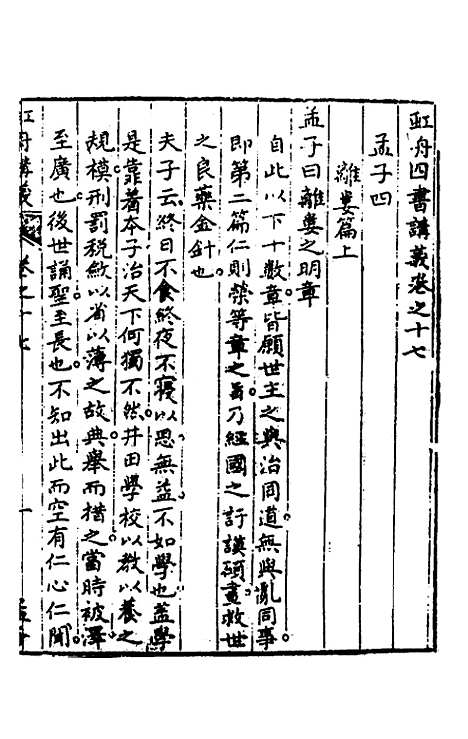 虹舟四書講義卷之十七
孟子四
離婁篇上
孟子曰離婁之明章
自此以下十數章皆願世主之與治同道無與亂同事
即第二篇仁則榮等章之旨乃經國之訏謨碩畫救世
之良藥金針也
夫子云終日不食終夜不寢以思無益不如學也蓋學
是靠着本子治天下何獨不然井田學校以教以養之
規模刑罰稅斂以省以薄之故典舉而措之當時被澤
至廣也後世誦聖至長也不知出此而空有仁心仁聞
虹舟講義 卷之十七 一 孟子